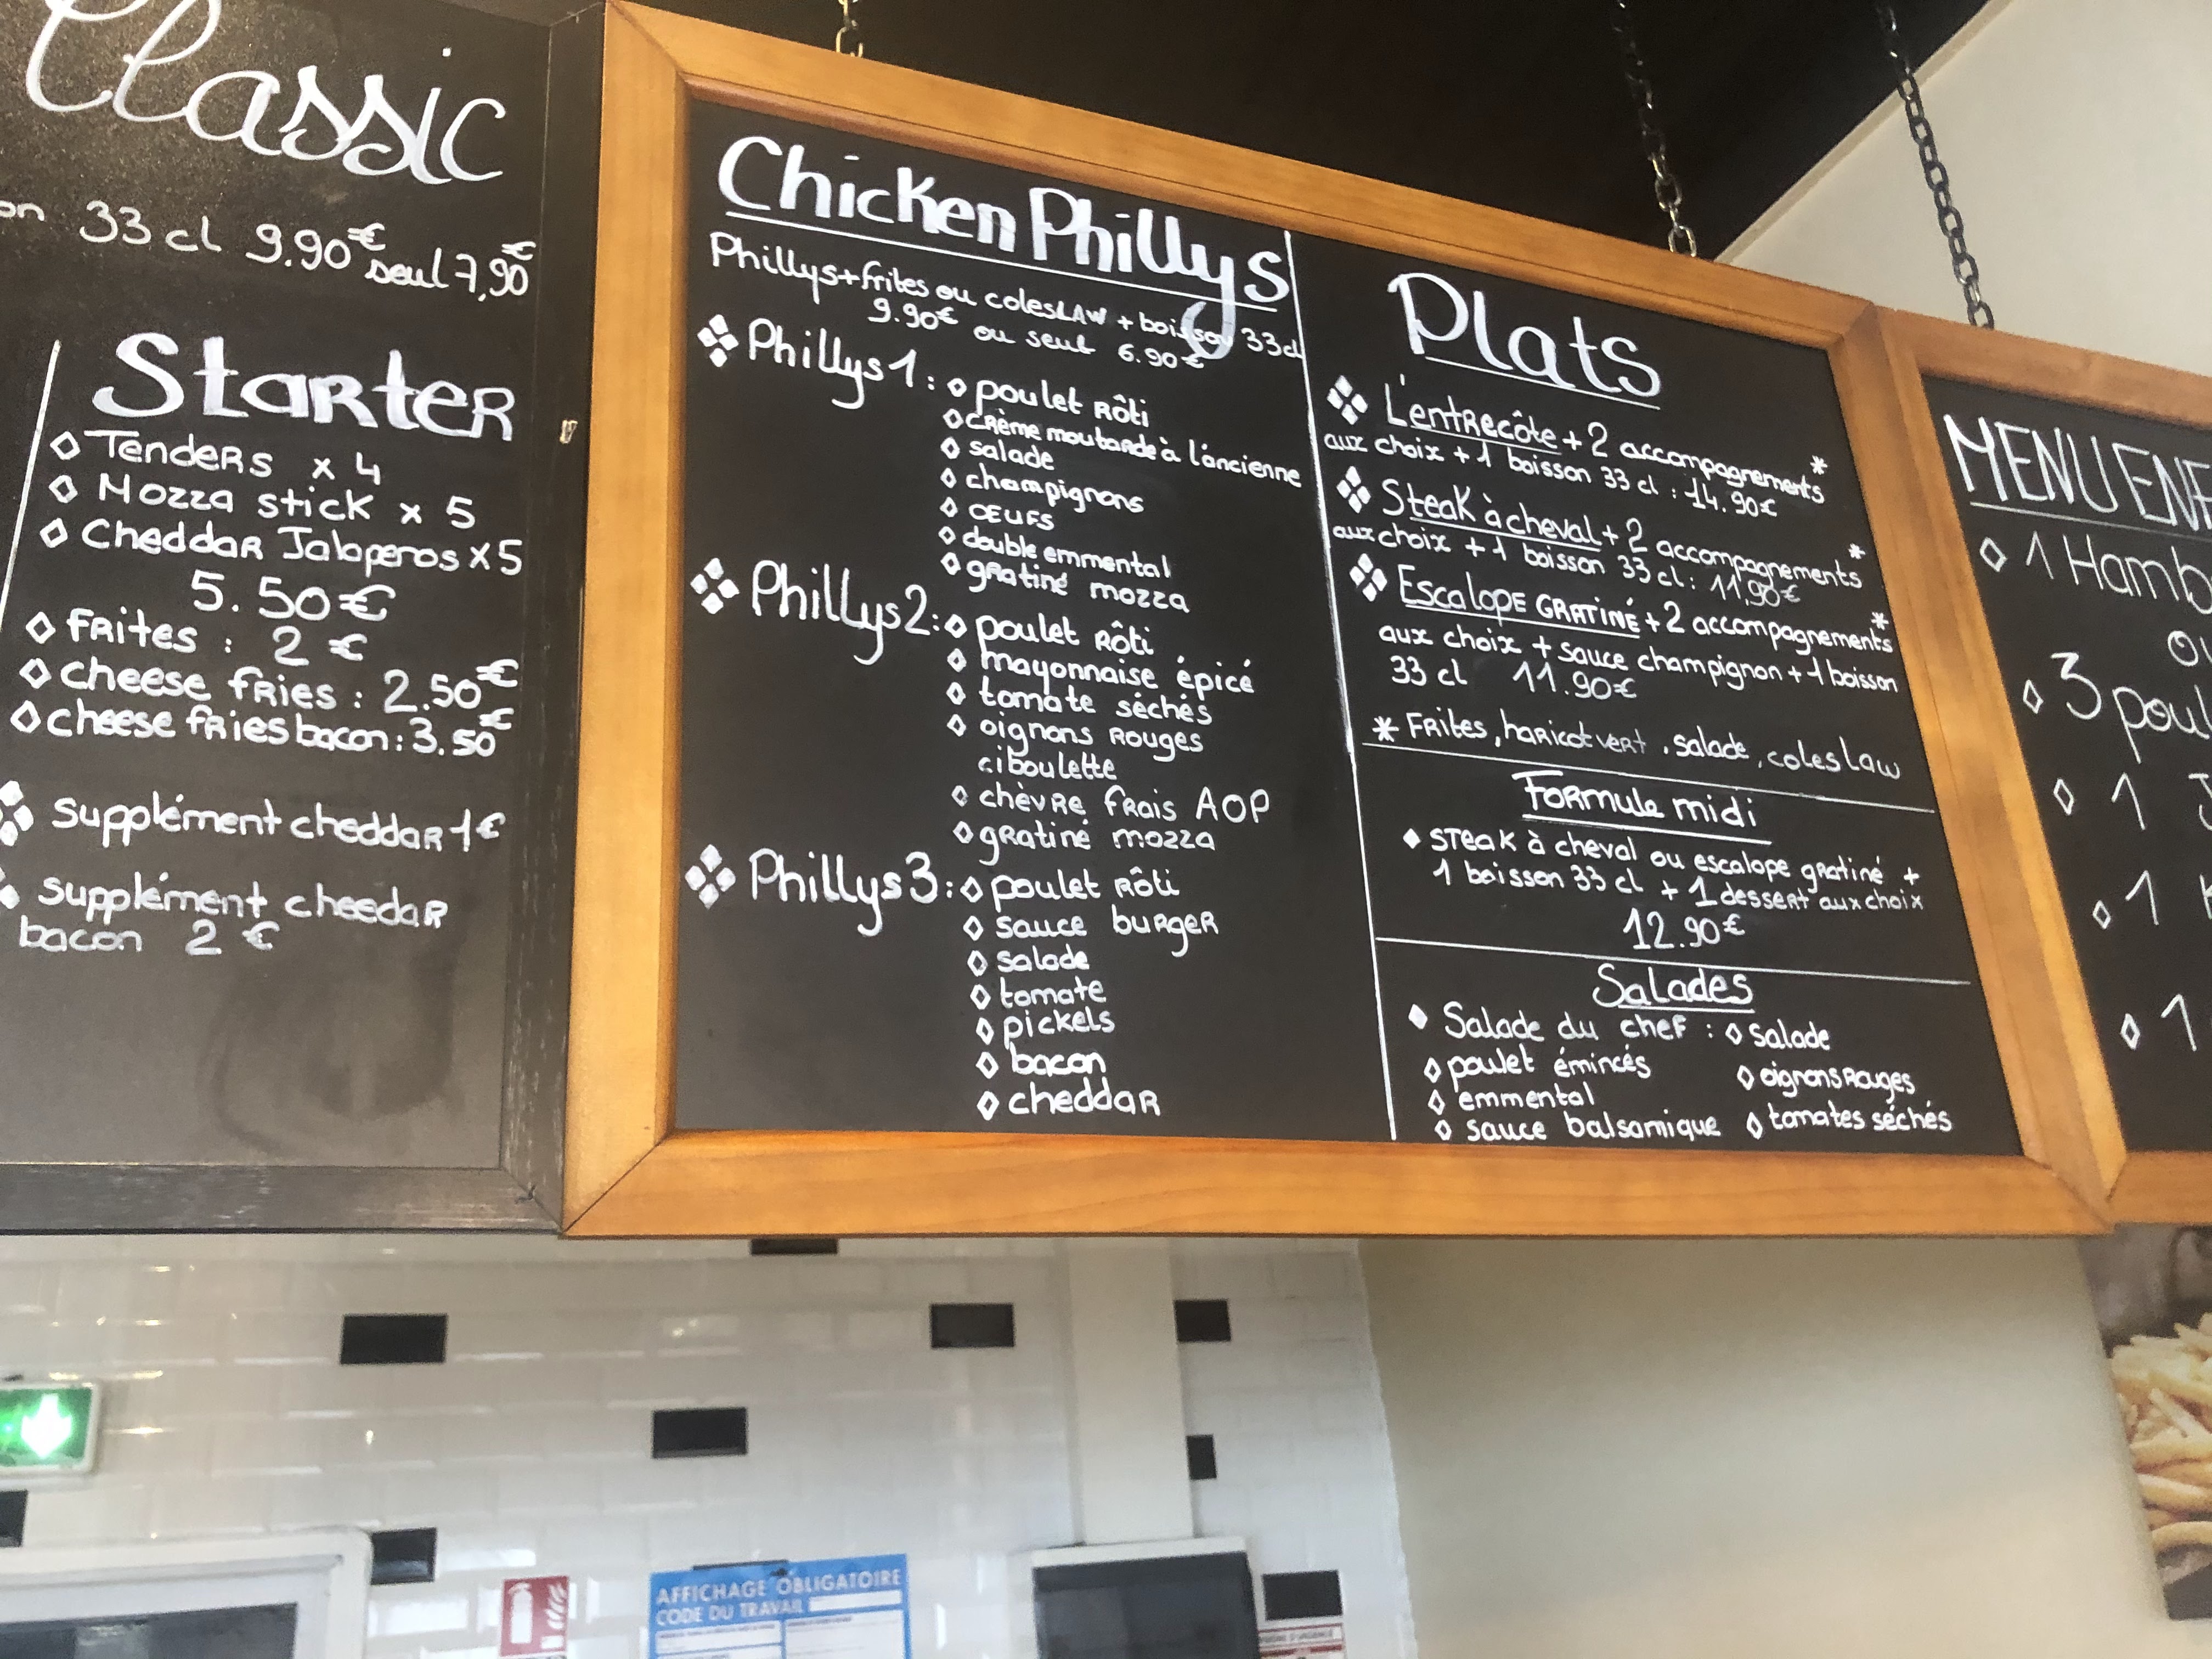 Classic
33 cl 9.90€ seul 7,90€
Starter
Tenders x 4
Mozza stick x 5
Cheddar Jalaperos x 5
5.50€
Frites : 2 €
cheese fries : 2.50€
cheese fries bacon : 3.50€
supplément cheddar 1€
supplément cheedar
bacon 2 €
Chicken Phillys
Phillys + frites ou coleslaw + boisson 33cl
9.90€ ou seul 6.90€
Phillys 1 : poulet rôti
crème moutarde à l'ancienne
salade
champignons
œufs
double emmental
gratiné mozza
Phillys 2 : poulet rôti
mayonnaise épicé
tomate séchés
oignons rouges
ciboulette
chèvre frais AOP
gratiné mozza
Phillys 3 : poulet rôti
sauce burger
salade
tomate
pickels
bacon
cheddar
Plats
L'entrecôte + 2 accompagnements *
aux choix + 1 boisson 33 cl : 14.90€
Steak à cheval + 2 accompagnements *
aux choix + 1 boisson 33 cl : 11,90€
Escalope gratiné + 2 accompagnements *
aux choix + sauce champignon + 1 boisson
33 cl 11.90€
* Frites, haricot vert, salade, coleslaw
Formule midi
Steak à cheval ou escalope gratiné +
1 boisson 33 cl + 1 dessert aux choix
12.90€
Salades
Salade du chef : salade
poulet émincés oignons rouges
emmental
sauce balsamique tomates séchés
MENU
1
3
1
1
1
AFFICHAGE OBLIGATOIRE
CODE DU TRAVAIL